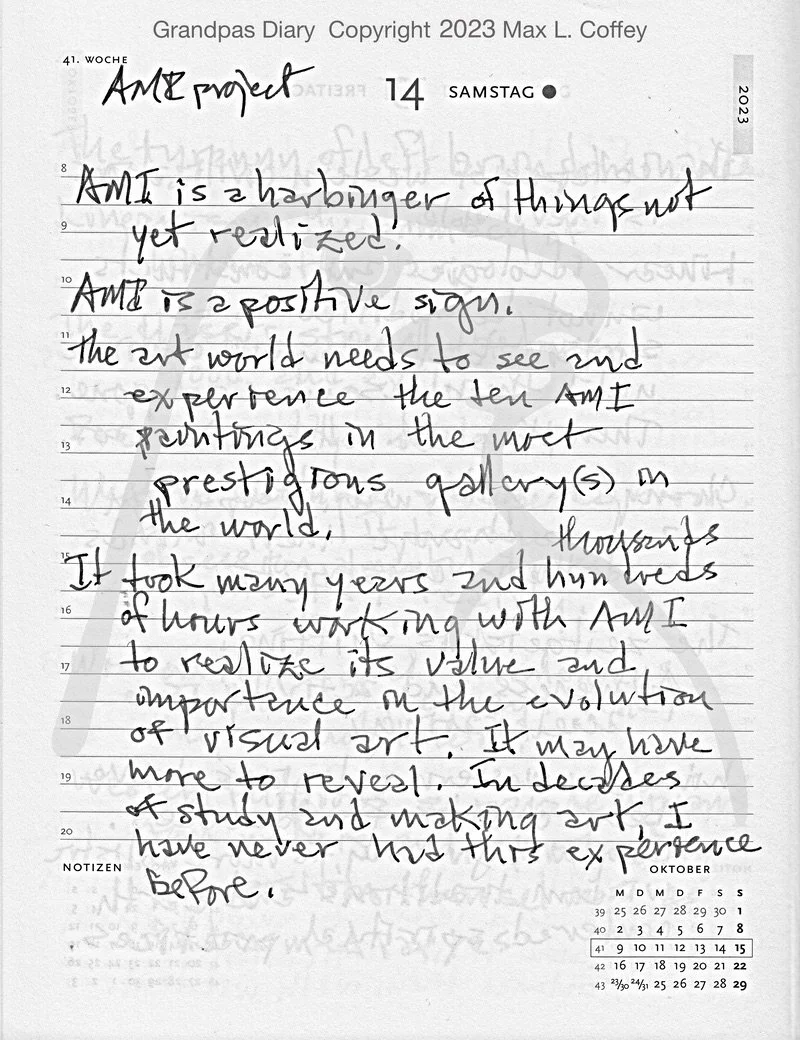 Grandpas Diary Copyright 2023 Max L. Coffey
41. WOCHE
AMI project
14 SAMSTAG
2023
8
AMI is a harbinger of things not
9
yet realized.
10
AMI is a positive sign.
11
The art world needs to see and
12
experience the ten AMI
13
paintings in the most
prestigious gallery(s) in
14
the world.
thousands
15
It took many years and hundreds
16
of hours working with AMI
17
to realize its value and
importance in the evolution
18
of visual art. It may have
19
more to reveal. In decades
of study and making art, I
20
have never had this experience
NOTIZEN
before.
OKTOBER
M D M D F S S
39 25 26 27 28 29 30 1
40 2 3 4 5 6 7 8
41 9 10 11 12 13 14 15
42 16 17 18 19 20 21 22
43 23/30 24/31 25 26 27 28 29